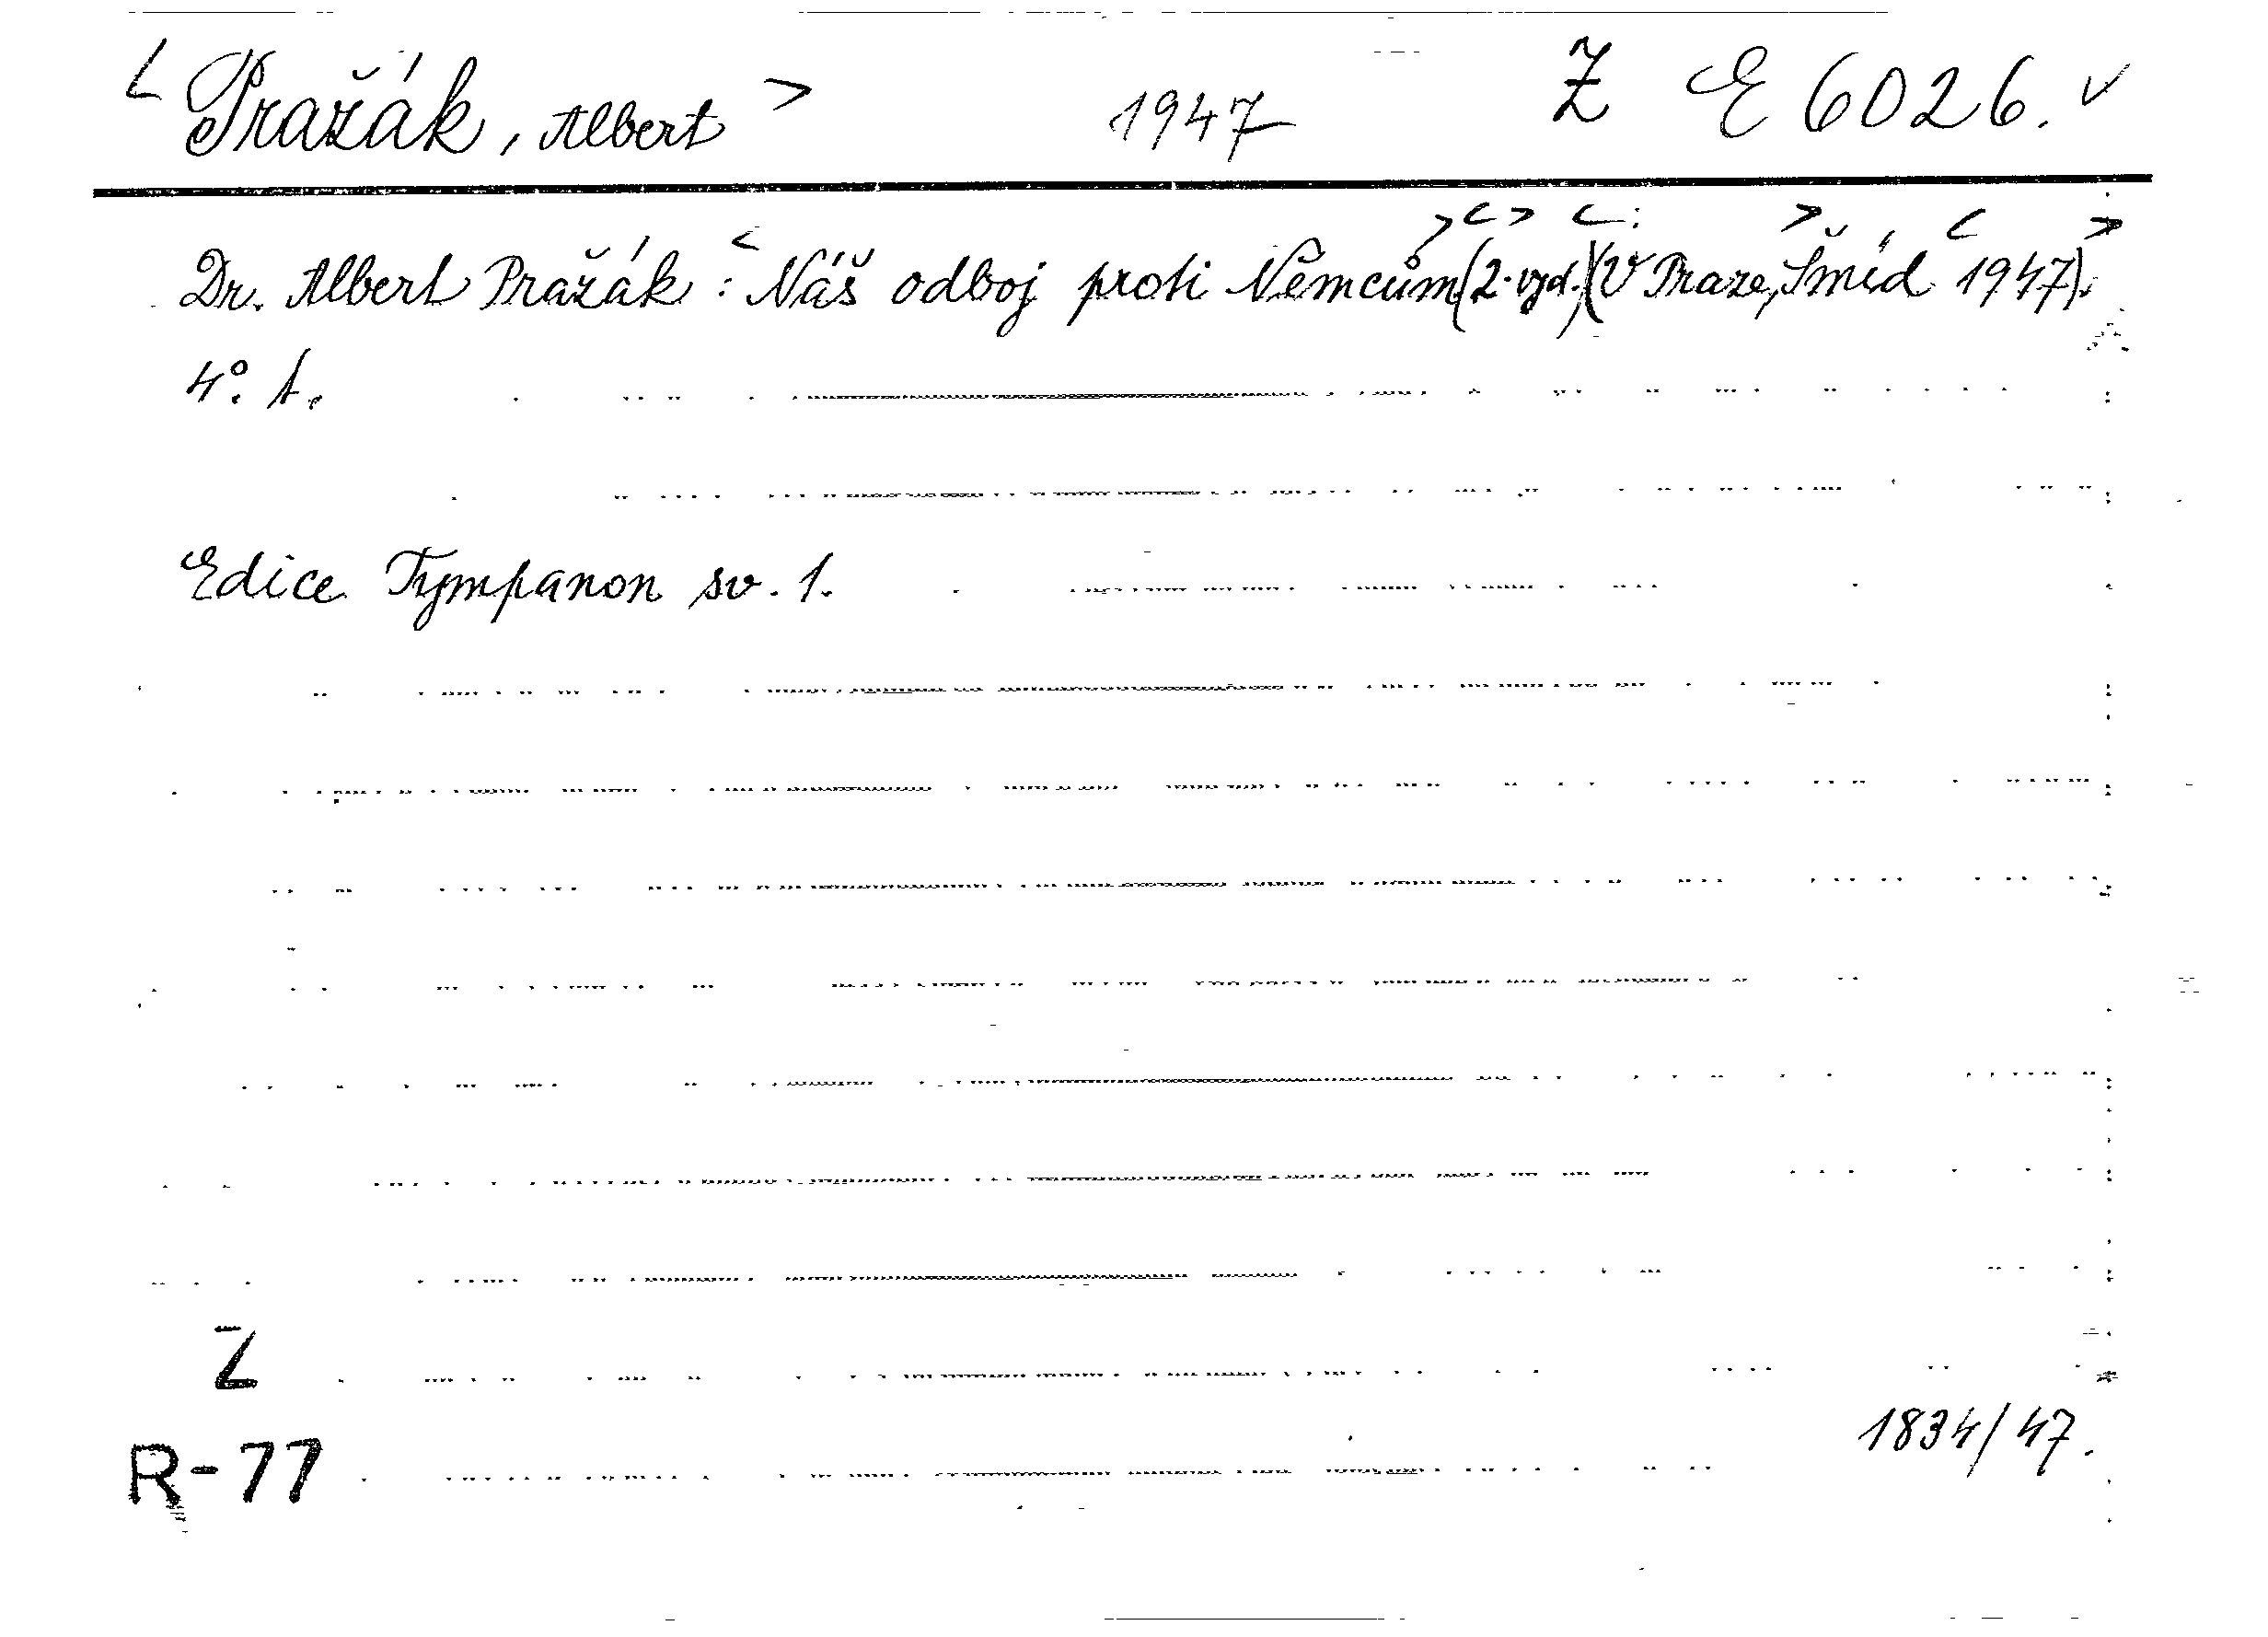 < Pražák, Albert > 1947 Z E 6026. v
Dr. Albert Pražák : < Náš odboj proti Němcům > (< 2. vyd. >) (< V Praze, > Šmíd < 1947 >).
4°. 1.
Edice Tympanon sv. 1.
Z
1834/47.
R-77